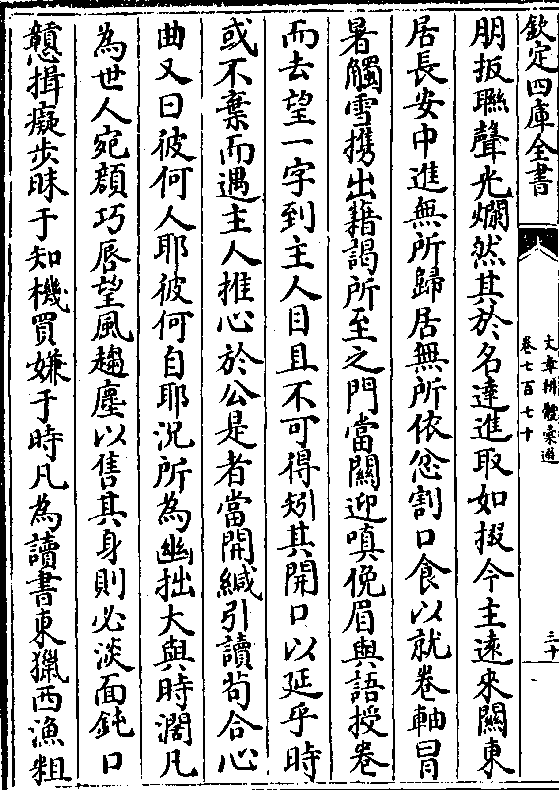 欽定四庫全書
文章辨體彙選
卷七百七十
三十
朋扳聯聲光爛然其於名達進取如掇今主遠來關東
居長安中進無所歸居無所依忿割口食以就卷軸冐
暑觸雪携出籍謁所至之門當關迎嗔俛眉與語授卷
而去望一字到主人目且不可得矧其開口以延乎時
或不棄而遇主人推心於公是者當開緘引讀茍合心
曲又曰彼何人耶彼何自耶况所為幽拙大與時濶凡
為世人宛顔巧唇望風趨塵以售其身則必淡面鈍口
戇揖癡步昧于知機買嫌于時凡為讀書東獵西漁粗